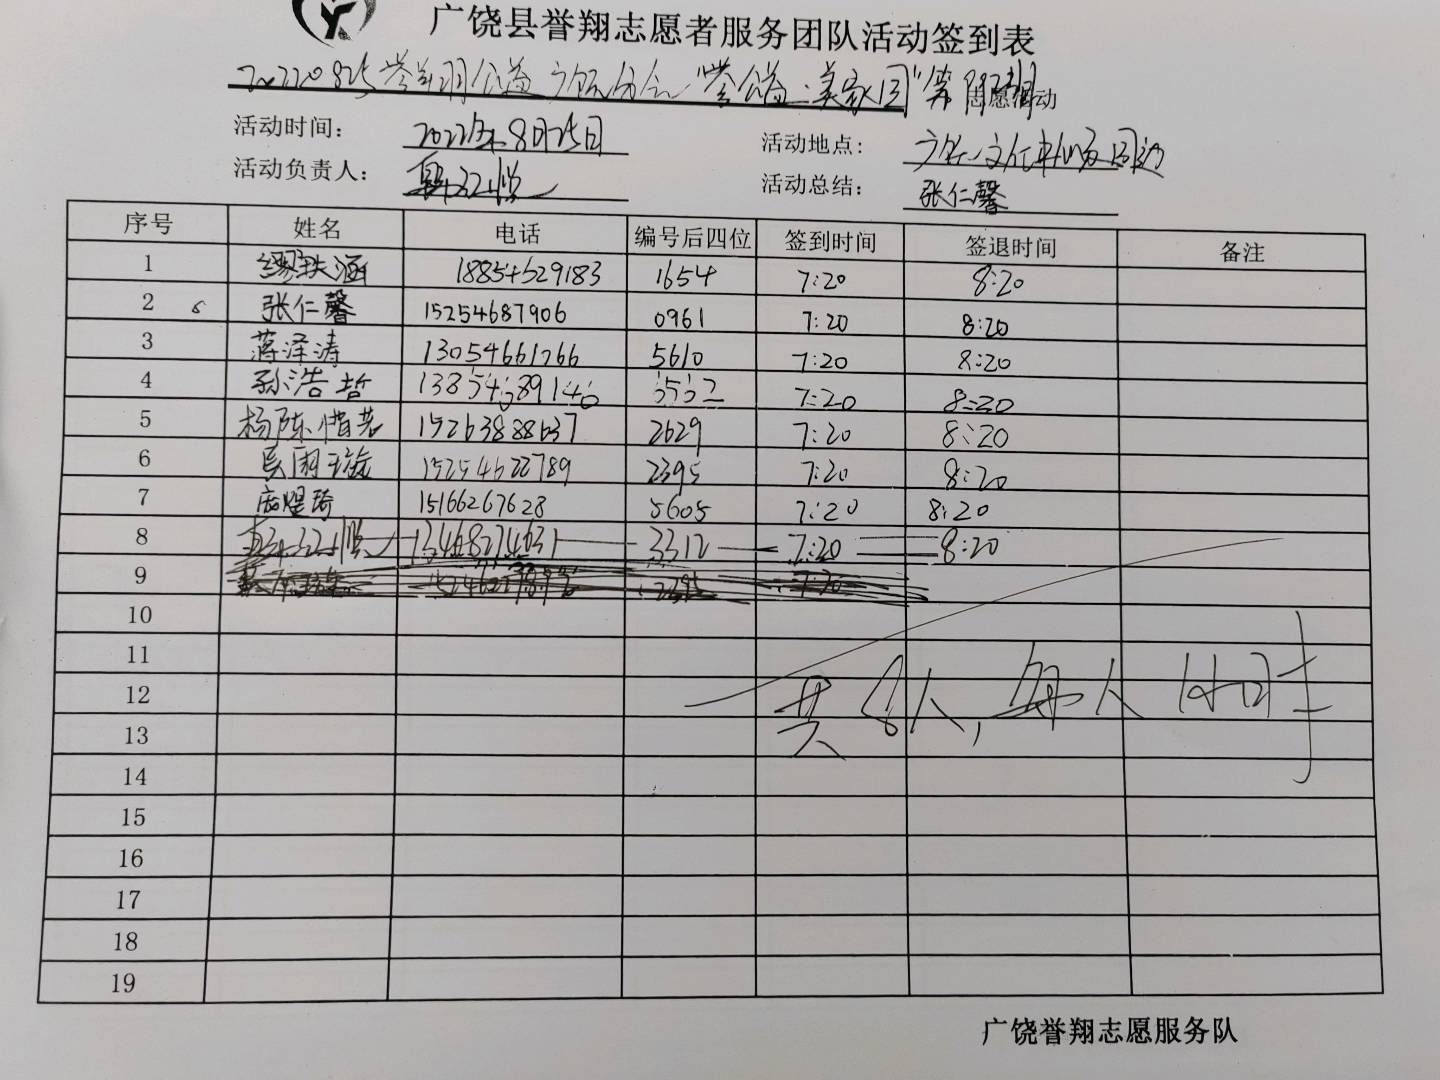 广饶县誉翔志愿者服务团队活动签到表
20220825誉翔公益广饶分会“誉公益·美家园”第 期 志愿活动
活动时间： 2022年8月25日 活动地点： 广饶
活动负责人： 活动总结： 张仁馨
序号 姓名 电话 编号后四位 签到时间 签退时间 备注
1 涵 18854629183 1654 7:20 8:20
2 张仁馨 15254687906 0961 7:20 8:20
3 蒋泽涛 13054661766 5610 7:20 8:20
4 孙浩哲 7:20 8:20
5 杨陈惜若 15263888637 2629 7:20 8:20
6 15254622789 2395 7:20 8:20
7 15166267628 5605 7:20 8:20
8 13468274631 3312 7:20 8:20
9 2395 7:20
10
11
12
共8人，每人1小时
13
14
15
16
17
18
19
广饶誉翔志愿服务队